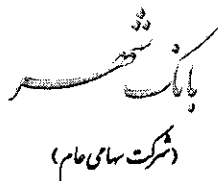 بانک شهر
(شرکت سهامی عام)